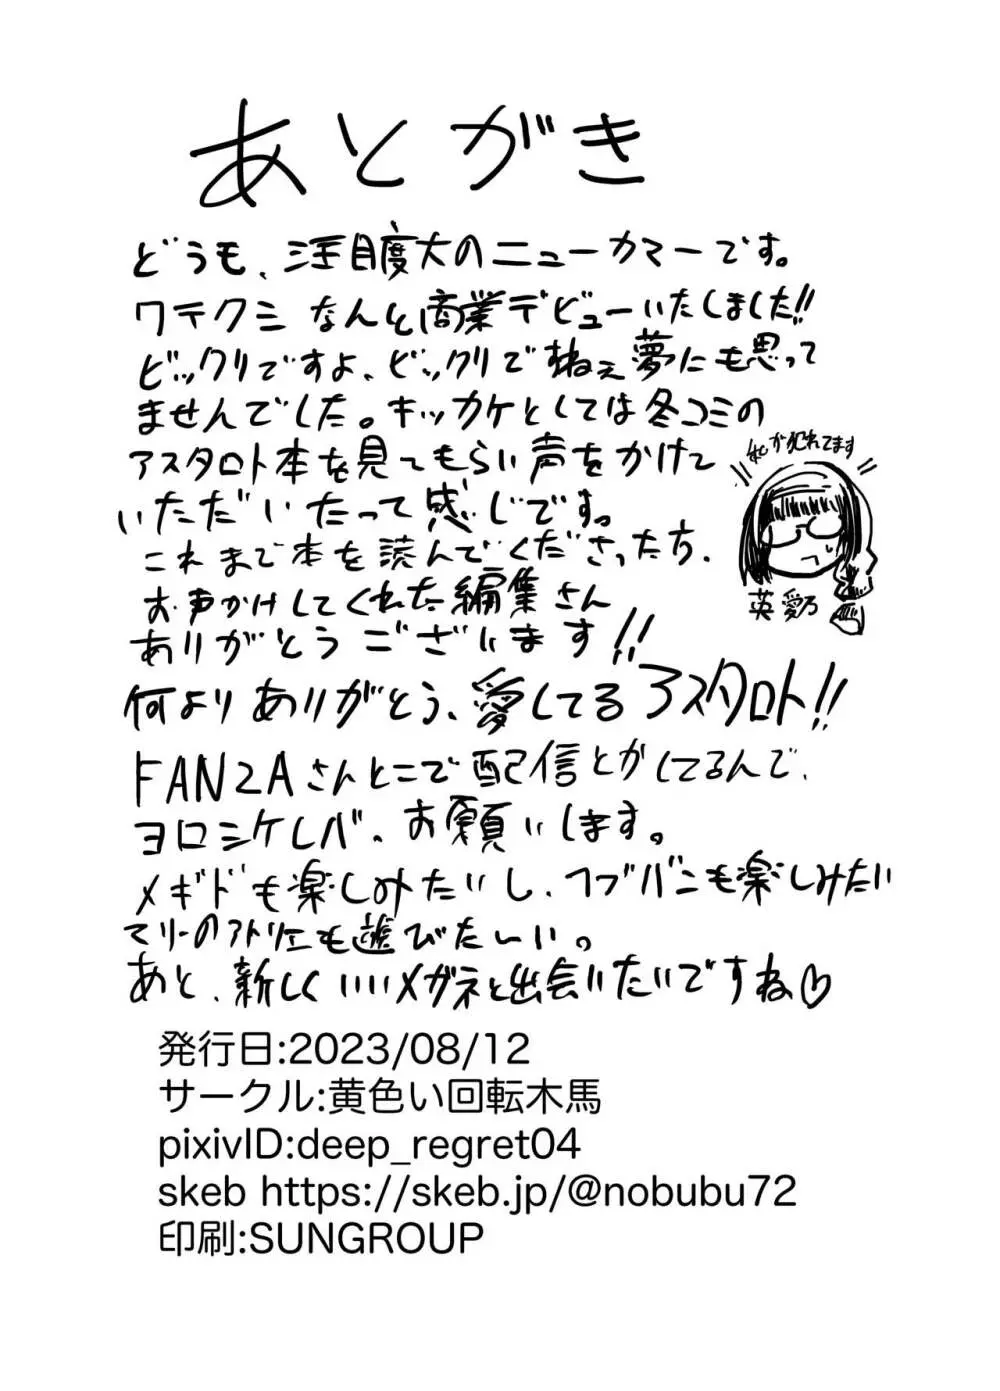 あとがき
どうも、注目度大のニューカマーです。
ワテクシ なんと商業デビューいたしました!!
ビックリですよ、ビックリでねぇ夢にも思って
ませんでした。キッカケとしては冬コミの
アスタロト本を見てもらい声をかけて
いただいたって感じです。
これまで本を読んでくださった方、
お声かけしてくれた編集さん
ありがとうございます!!
何よりありがとう、愛してるアスタロト!!
FANZAさんとこで配信とかしてるんで、
ヨロシケレバ、お願いします。
メギドも楽しみたいし、ヘブバンも楽しみたい
マリーのアトリエも遊びたーい。
あと、新しくいいメガネと出会いたいですね♡
が犯れてます
英 愛乃
発行日:2023/08/12
サークル:黄色い回転木馬
pixivID:deep_regret04
skeb https://skeb.jp/@nobubu72
印刷:SUNGROUP